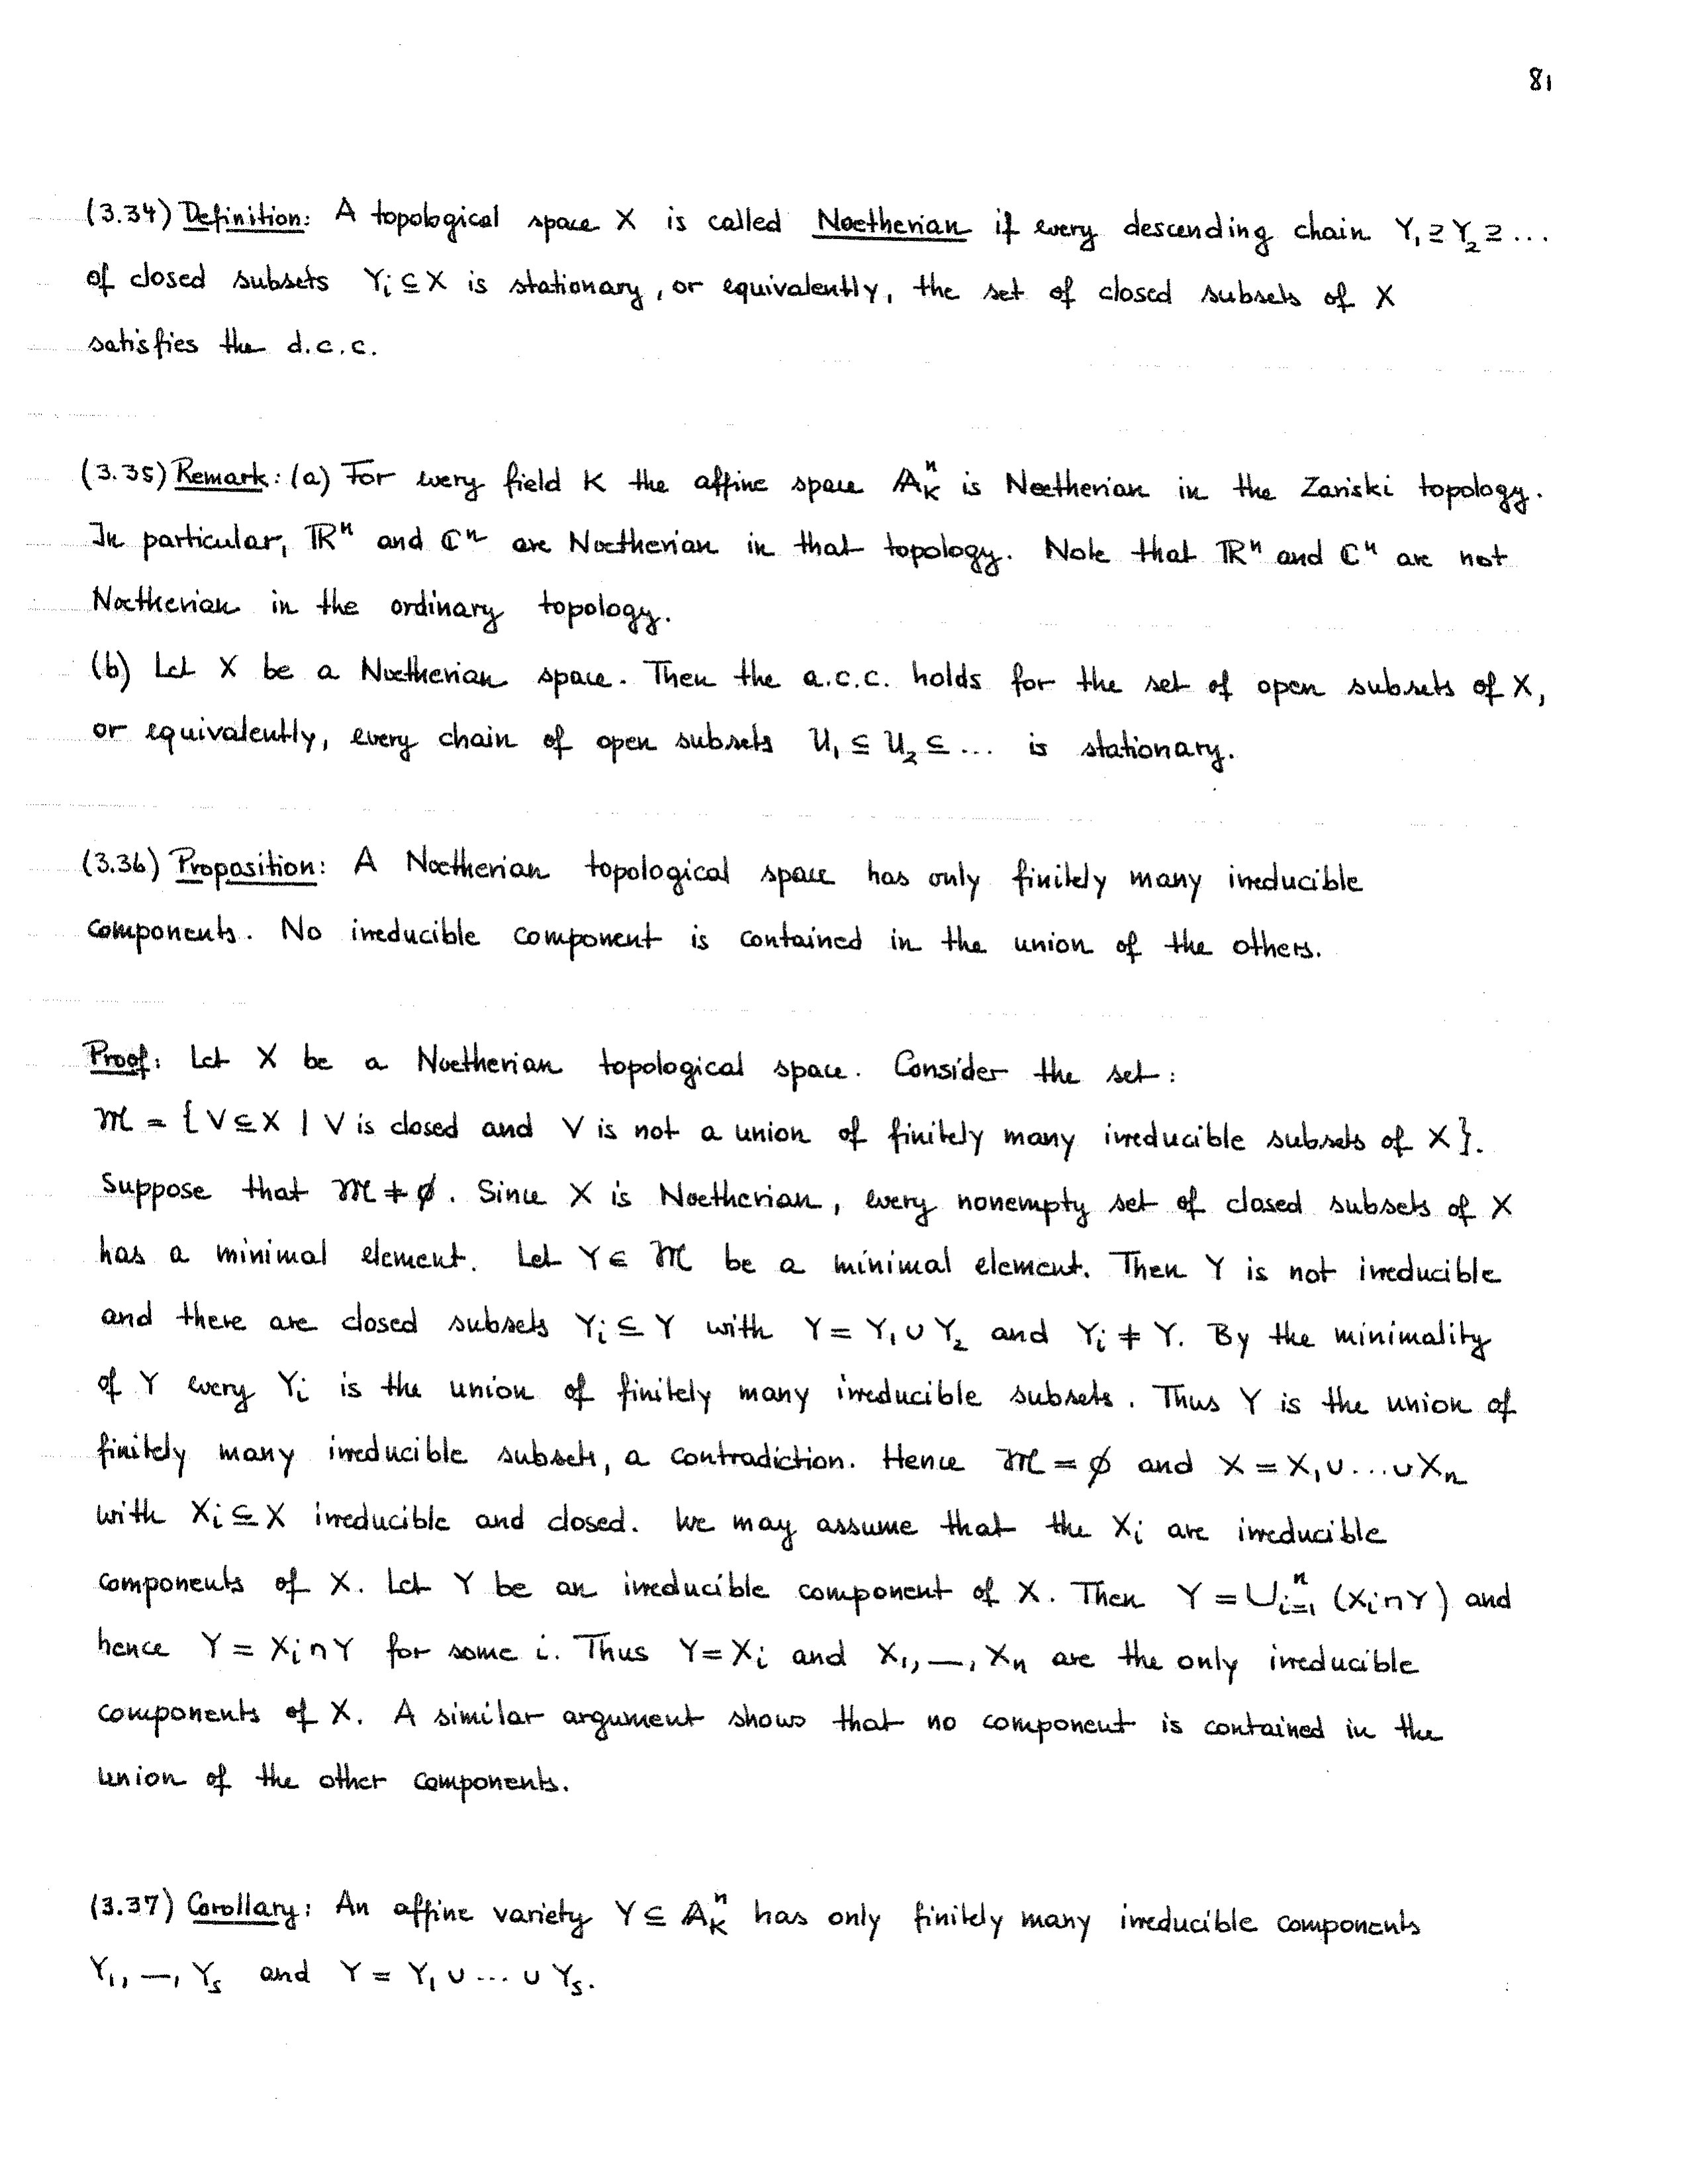 81
(3.34) Definition: A topological space X is called Noetherian if every descending chain Y₁ ⊇ Y₂ ⊇ ...
of closed subsets Yᵢ ⊆ X is stationary, or equivalently, the set of closed subsets of X
satisfies the d.c.c.
(3.35) Remark: (a) For every field K the affine space 𝔸ⁿ_K is Noetherian in the Zariski topology.
In particular, ℝⁿ and ℂⁿ are Noetherian in that topology. Note that ℝⁿ and ℂⁿ are not
Noetherian in the ordinary topology.
(b) Let X be a Noetherian space. Then the a.c.c. holds for the set of open subsets of X,
or equivalently, every chain of open subsets U₁ ⊆ U₂ ⊆ ... is stationary.
(3.36) Proposition: A Noetherian topological space has only finitely many irreducible
components. No irreducible component is contained in the union of the others.
Proof: Let X be a Noetherian topological space. Consider the set:
𝓜 = {V ⊆ X | V is closed and V is not a union of finitely many irreducible subsets of X}.
Suppose that 𝓜 ≠ ∅. Since X is Noetherian, every nonempty set of closed subsets of X
has a minimal element. Let Y ∈ 𝓜 be a minimal element. Then Y is not irreducible
and there are closed subsets Yᵢ ⊆ Y with Y = Y₁ ∪ Y₂ and Yᵢ ≠ Y. By the minimality
of Y every Yᵢ is the union of finitely many irreducible subsets. Thus Y is the union of
finitely many irreducible subsets, a contradiction. Hence 𝓜 = ∅ and X = X₁ ∪ ... ∪ Xₙ
with Xᵢ ⊆ X irreducible and closed. We may assume that the Xᵢ are irreducible
components of X. Let Y be an irreducible component of X. Then Y = ⋃ⁿᵢ₌₁ (Xᵢ ∩ Y) and
hence Y = Xᵢ ∩ Y for some i. Thus Y = Xᵢ and X₁, —, Xₙ are the only irreducible
components of X. A similar argument shows that no component is contained in the
union of the other components.
(3.37) Corollary: An affine variety Y ⊆ 𝔸ⁿ_K has only finitely many irreducible components
Y₁, —, Yₛ and Y = Y₁ ∪ ... ∪ Yₛ.